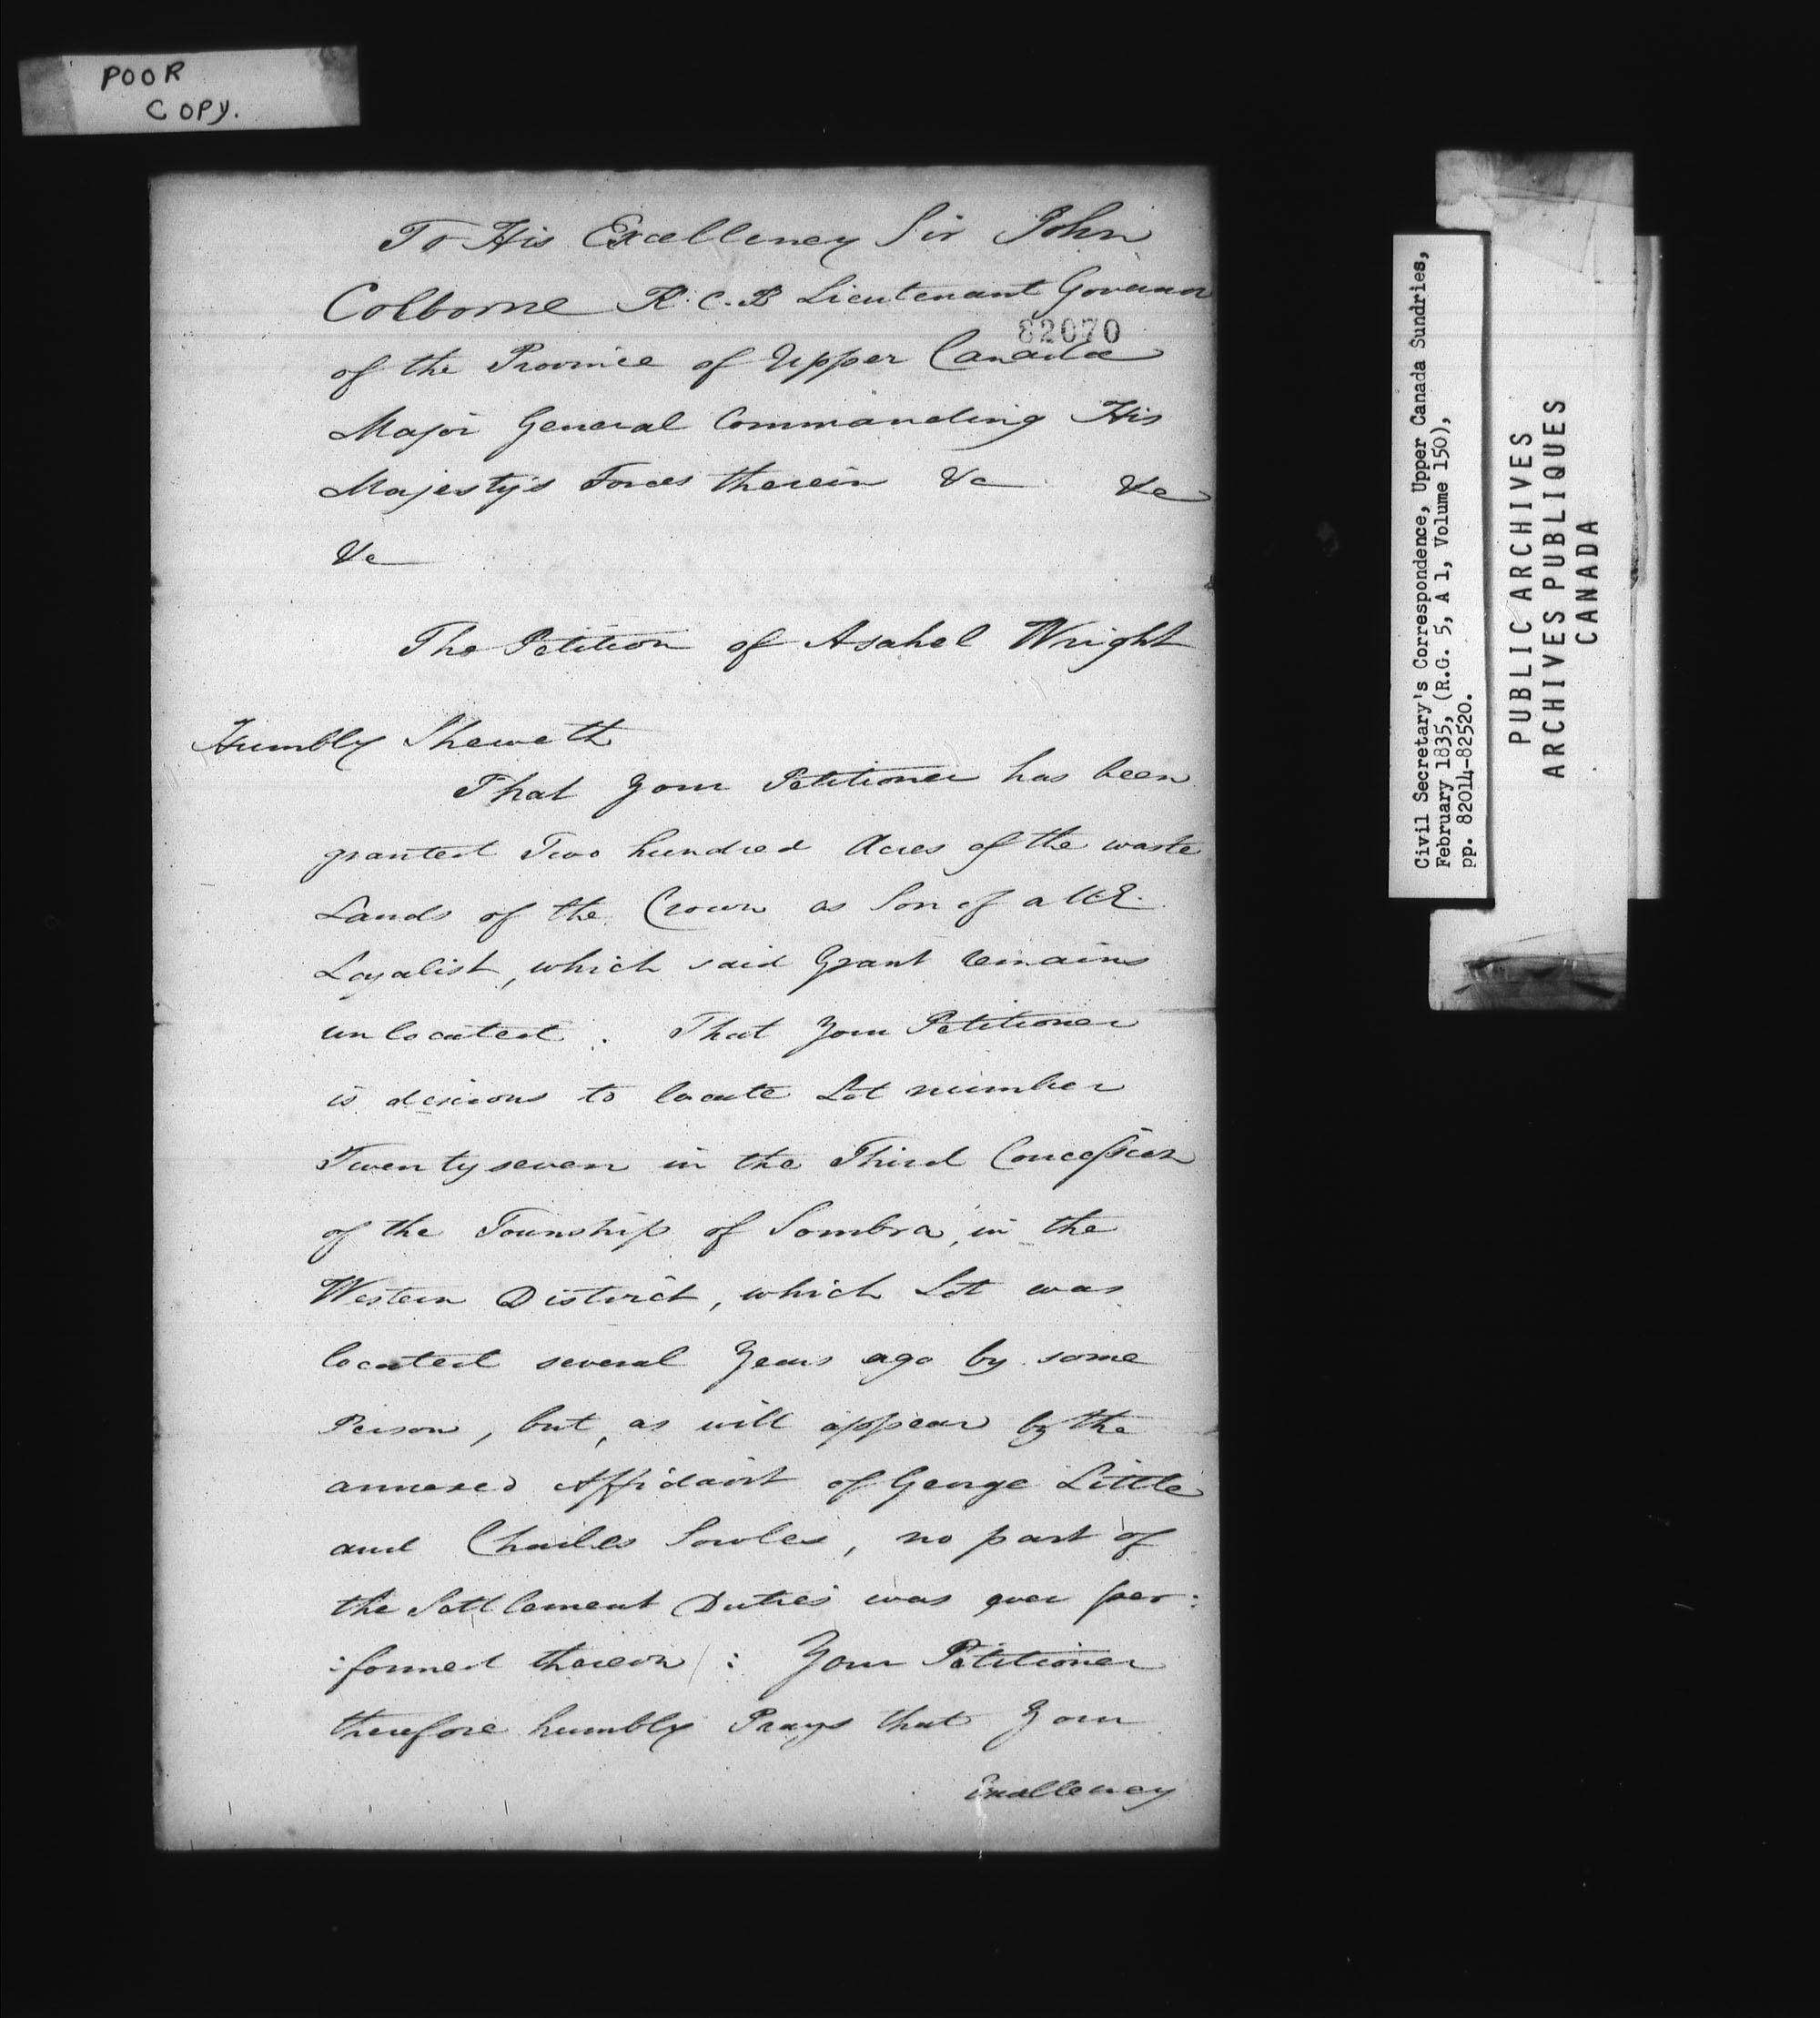 POOR
COPY.
To His Excellency Sir John
Colborne K.C.B Lieutenant Governor
82070
of the Province of Upper Canada
Major General Commanding His
Majesty's Forces therein &c &c
&c
The Petition of Asahel Wright
Humbly Sheweth
That Your Petitioner has been
granted Two hundred Acres of the waste
Lands of the Crown as Son of a U.E.
Loyalist, which said Grant remains
unlocated. That Your Petitioner
is desirous to locate Lot number
Twenty seven in the Third Concession
of the Township of Sombra, in the
Western District, which Lot was
located several Years ago by some
Person, but, as will appear by the
annexed Affidavit of George Little
and Charles Sowles, no part of
the Settlement Duties was ever per:
:formed thereon: Your Petitioner
therefore humbly Prays that Your
Excellency
Civil Secretary's Correspondence, Upper Canada Sundries,
February 1835, (R.G. 5, A 1, Volume 150),
pp. 82014-82520.
PUBLIC ARCHIVES
ARCHIVES PUBLIQUES
CANADA